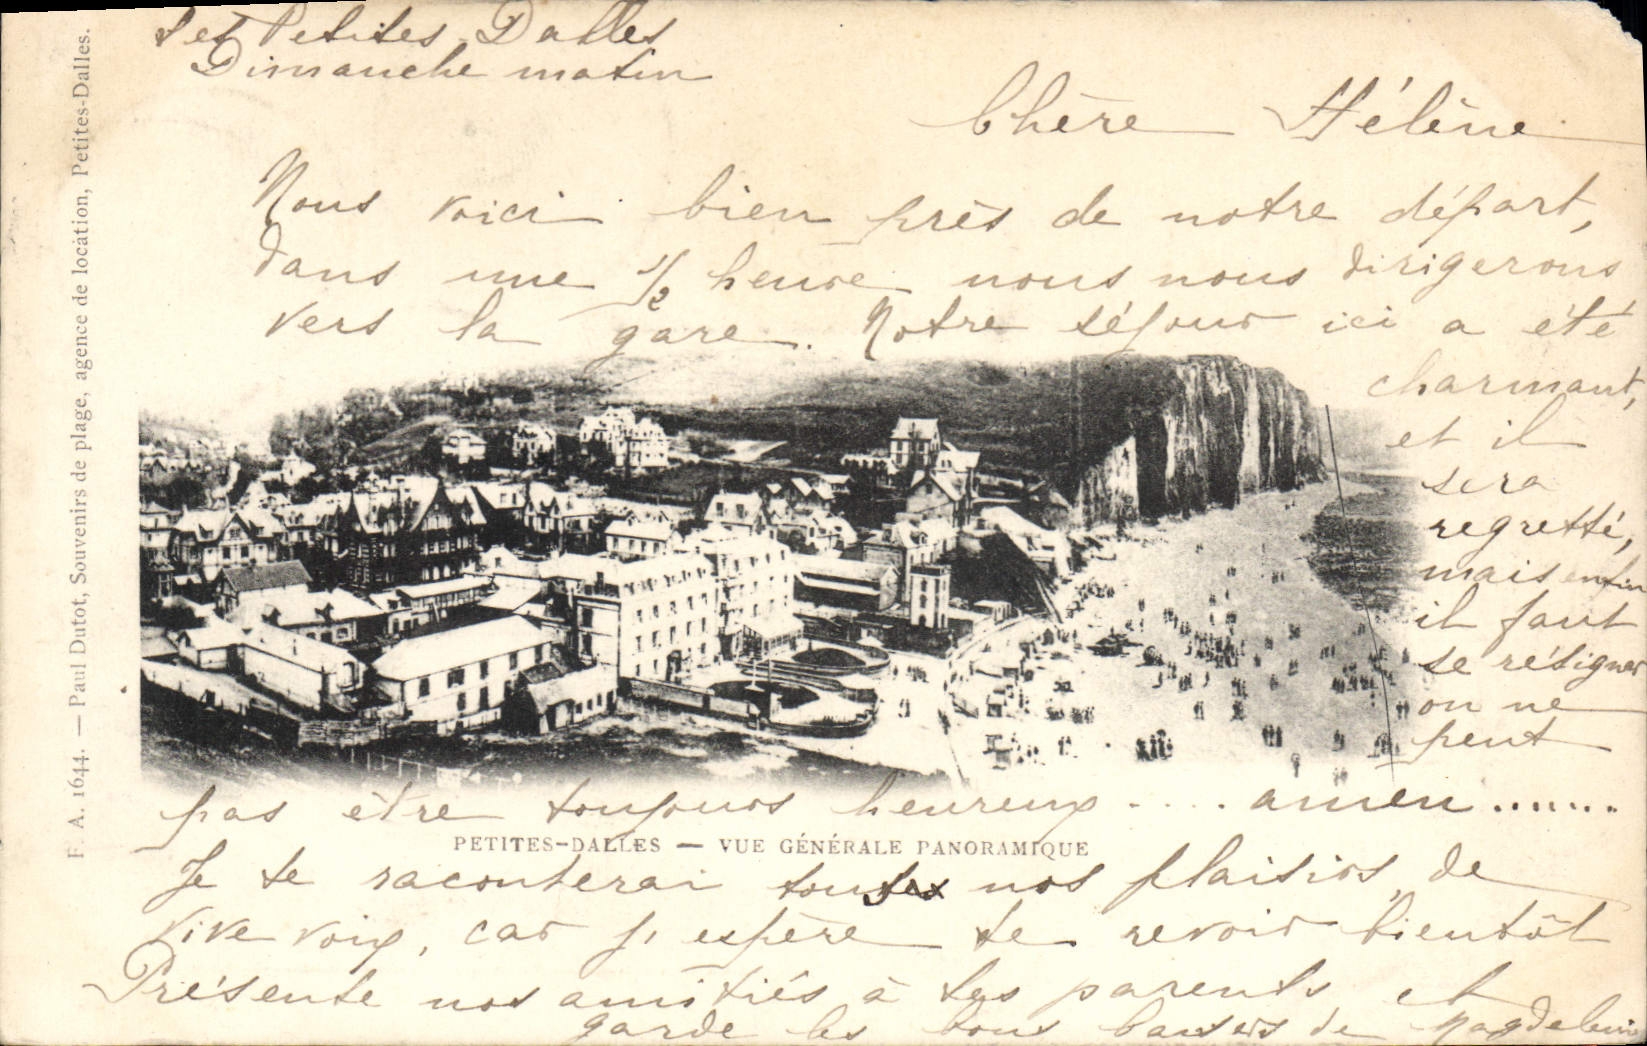 Les Petites Dalles
Dimanche matin
Chère Hélène
Nous voici bien près de notre départ,
dans une 1/2 heure nous nous dirigerons
vers la gare. Notre séjour ici a été
charmant,
et il
sera
regretté,
mais enfin
il faut
se résigner
on ne
peut
pas être toujours heureux .... amen .......
PETITES-DALLES — VUE GÉNÉRALE PANORAMIQUE
Je te raconterai tous nos plaisirs, de
vive voix, car j'espère te revoir bientôt
Présente nos amitiés à tes parents et
garde les bons baisers de Magdeleine
F. A. 1644. — Paul Dutot, Souvenirs de plage, agence de location, Petites-Dalles.